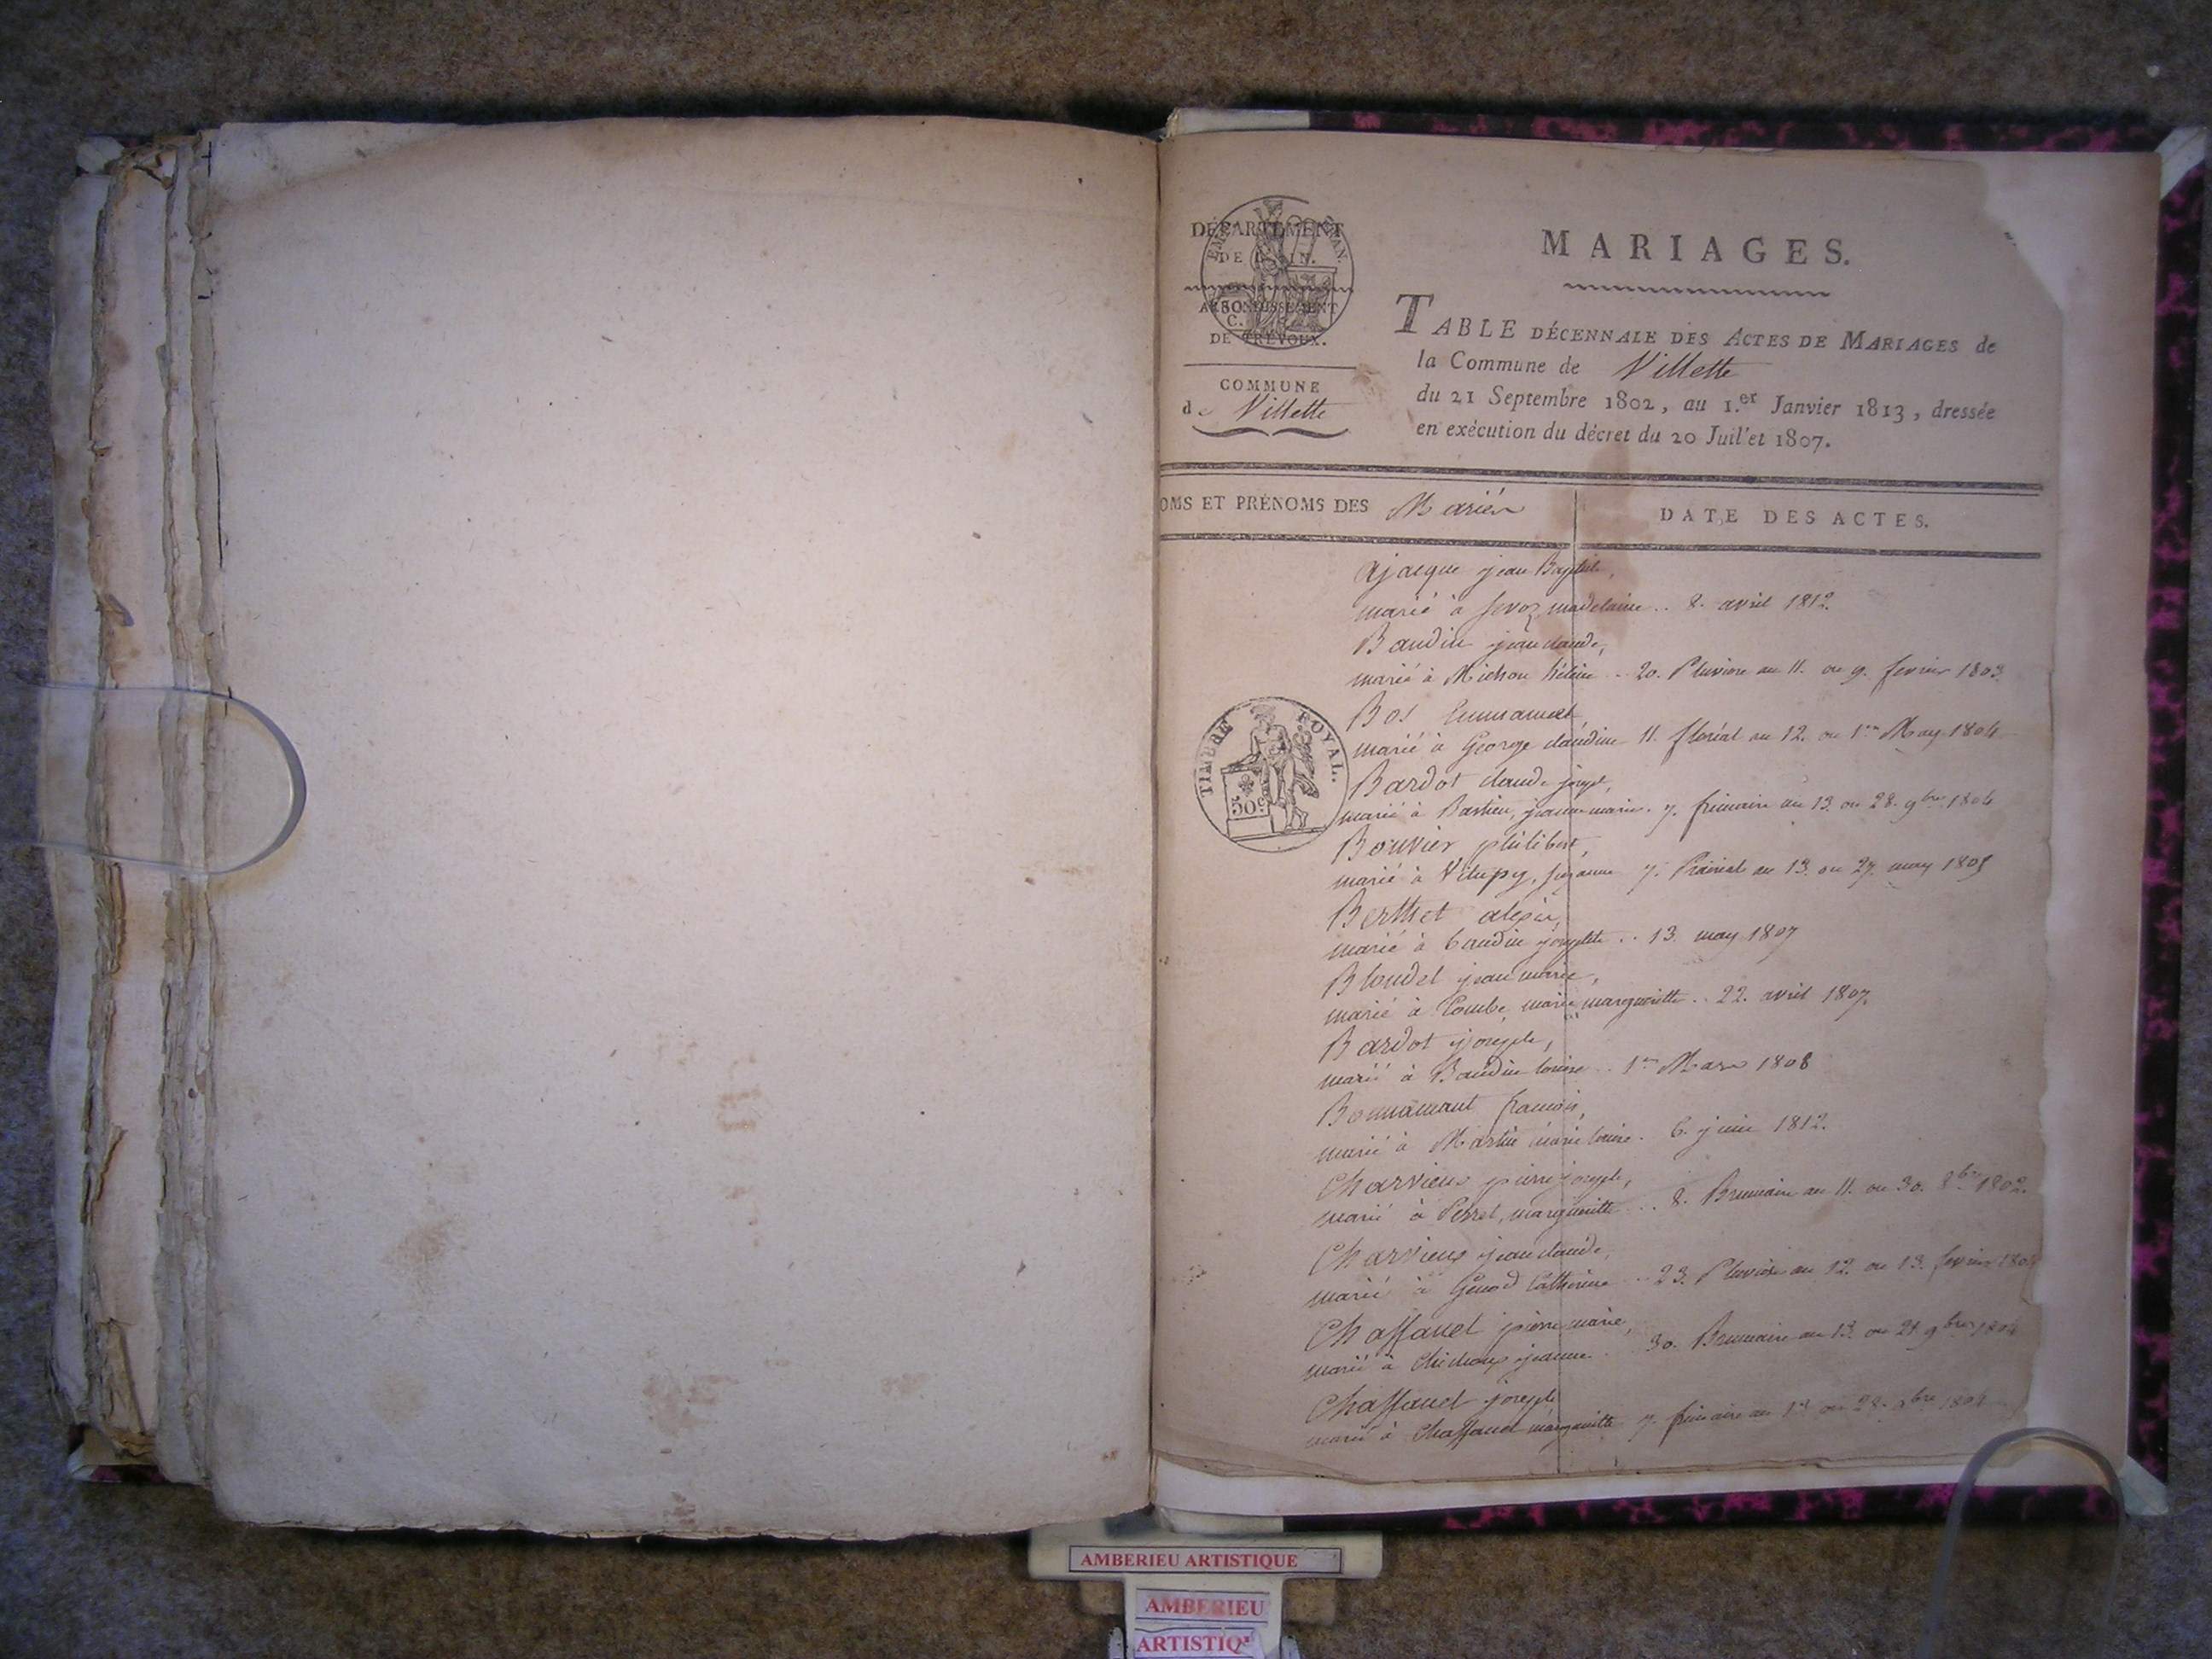 DÉPARTEMENT
DE L'AIN.
ARRONDISSEMENT
DE TRÉVOUX.
50
C.
COMMUNE
de Villette
MARIAGES.
TABLE DÉCENNALE DES ACTES DE MARIAGES de
la Commune de Villette
du 21 Septembre 1802, au 1.er Janvier 1813, dressée
en exécution du décret du 20 Juil'et 1807.
OMS ET PRÉNOMS DES Mariés
DATE DES ACTES.
TIMBRE ROYAL.
50c
jean Baptiste,
marié à madelaine .. 8. avril 1812.
Baudin jean claude,
marié à Michon hélène .. 20. Pluviose an 11. ou 9. fevrier 1803.
Bos Emmanuel
marié à George claudine 11. floréal an 12. ou 1er May 1804
Bardot claude joseph,
marié à Bastien, jeanne marie. 7. frimaire an 13. ou 28. 9bre 1804
Bouvier philibert,
marié à suzanne 7. Prairial an 13. ou 27. may 1805
Berthet alexis,
marié à baudin josephte .. 13. may 1807
Blondel jean marie,
marié à Combe marie margueritte .. 22. avril 1807.
Bardot joseph,
marié à Baudin louise .. 1er Mars 1808
Bonnamant francois,
marié à Martin marie louise. 6. juin 1812.
Charvieux pierre joseph,
marié à Perret, margueritte ... 8. Brumaire an 11. ou 30. 8bre 1802.
Charvieux jean claude,
marié à Genod Catherine .. 23. Pluviose an 12. ou 13. fevrier 1804
Chaffauel pierre marie,
marié à jeanne .. 30. Brumaire an 13. ou 21. 9bre 1804
Chaffauel joseph
marié à Chaffauel margueritte 7. frimaire an 13 ou 28. 9bre 1804
AMBERIEU ARTISTIQUE
AMBERIEU
ARTISTIQ